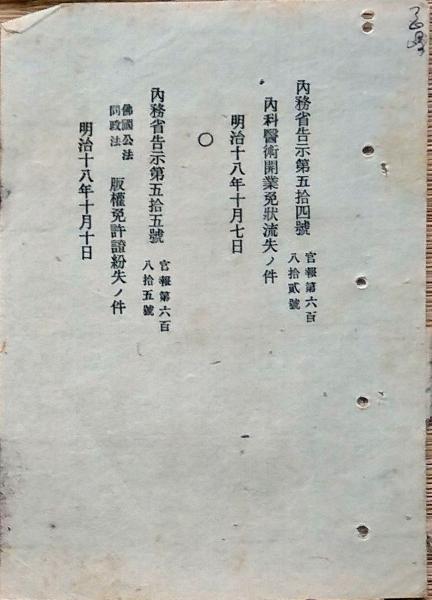 內務省告示第五拾四號
官報第六百
八拾貳號
內科醫術開業免狀流失ノ件
明治十八年十月七日
〇
內務省告示第五拾五號
官報第六百
八拾五號
佛國公法
同政法
版權免許證紛失ノ件
明治十八年十月十日